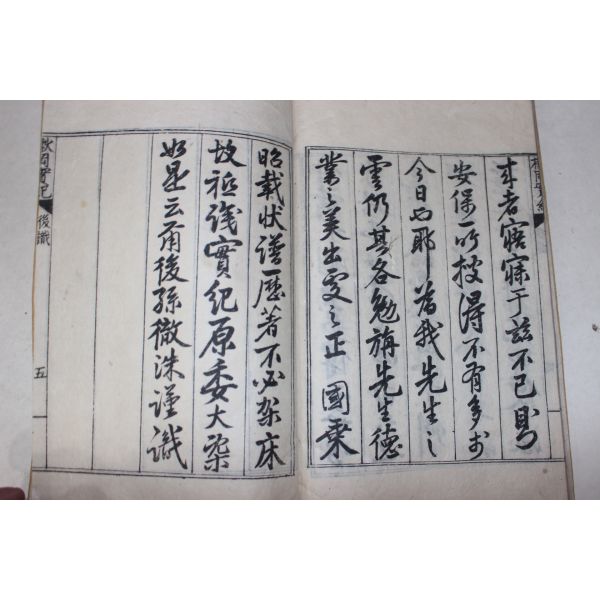 者寤寐于玆不已則
安保所搜得不有多於
今日也耶爲我先生之
雲仍其各勉旃先生德
業之美出處之正 國乘
昭載狀譜歷著不必架床
故祗識實紀原委大槩
如是云爾後孫徹洙謹識
後識
五